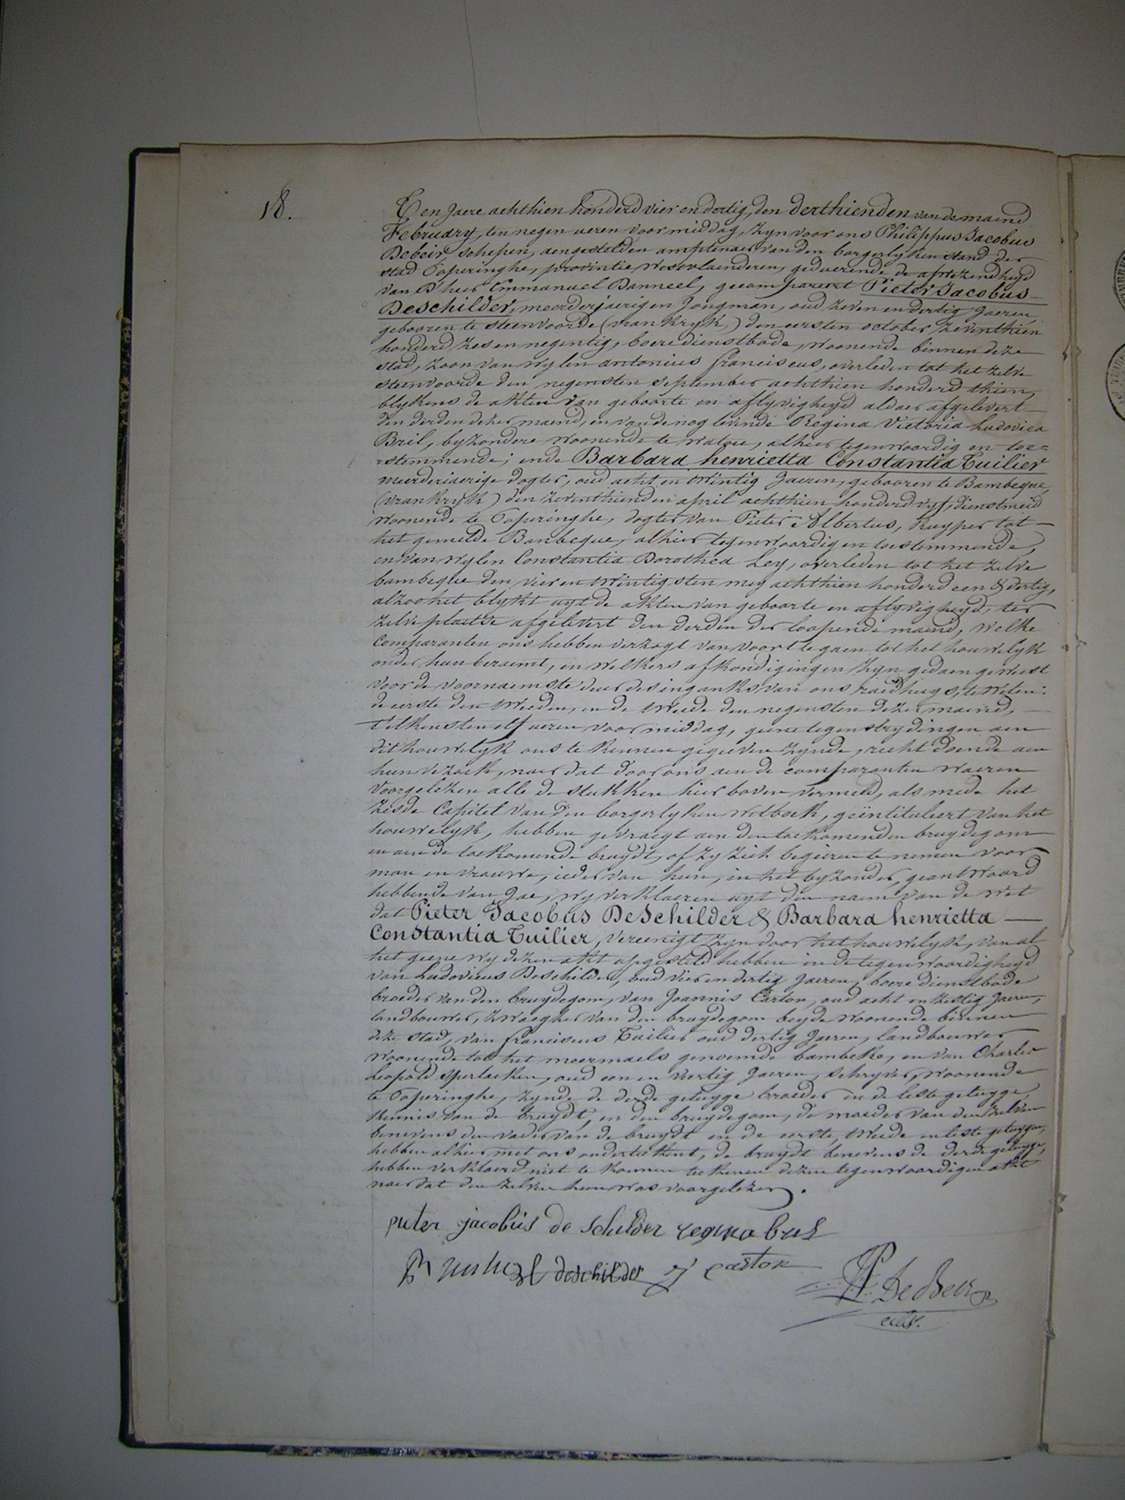 18.
Ten Jaere achthien honderd vier en dertig, den derthienden van de maend
February, ten negen ueren voormiddag, Zyn voor ons Philippus Jacobus
Debeir Schepen, aengestelden amptenaer van den borgerlyken stand der
stad Poperinghe, provintie Westvlaenderen, geduerende de afwezendheyd
van D'heer Emmanuel Banneel, gecompareert Pieter Jacobus
DeSchilder, meerderjaerigen Jongman, oud zeven en dertig Jaeren
gebooren te Steenvoorde (vrankryk) den eersten october zeventhien
honderd zes en negentig, boere dienstbode, woonende binnen deze
stad, zoon van wylen antonius franciscus, overleden tot het zelve
steenvoorde den negensten september achthien honderd thien,
blykens de akten van geboorte en aflyvigheyd aldaer afgelevert
den derden dezer maend, en van de nog levende Regina Victoria Ludovica
Bril, byzondere woonende te watou, alhier tegenwoordig en toe=
stemmende; ende Barbara henrietta Constantia Tuilier
meerderjaerige dogter, oud acht en twintig Jaeren, gebooren te Bambeque
(vrankryk) den zeventhienden april achthien honderd vyf, dienstmeid
woonende te Poperinghe, dogter van Pieter Albertus, kuyper tot
het gemelde Bambeque, alhier tegenwoordig en toestemmende,
en van wylen Constantia Dorothea Ley, overleden tot het zelve
bambeque den vier en twintigsten mey achthien honderd een & dertig,
alzoo het blykt uyt de akten van geboorte en aflyvigheyd, ter
zelve plaetse afgelevert den derden der loopende maend, welke
Comparanten ons hebben verzogt van voort te gaen tot het houwelyk
onder hun beraemt, en welkers afkondigingen zyn gedaen geweest
voor de voornaemste deur des ingangs van ons raedhuys, te weten:
de eerste den tweeden, en de tweede den negensten dezer maend,
telkensten elf ueren voormiddag, geene tegenstrydingen aen
dit houwelyk ons te kennen gegeeven zynde, recht doende aen
hun verzoek, naer dat door ons aen de comparanten waeren
voorgelezen alle de stukken hier boven vermeld, als mede het
zesde Capitel van den borgerlyken wetboek, geïntituleert van het
houwelyk, hebben gevraegt aen den toekomenden bruydegom
en aen de toekomende bruydt, of zy zich begeeren te nemen voor
man en vrouwe; ieder van hun, in het byzonder, geantwoord
hebbende van Jae, wy verklaeren uyt den naem van de wet
dat Pieter Jacobus DeSchilder & Barbara henrietta
Constantia Tuilier, vereenigt zyn door het houwelyk, van al
het geene wy dezen akt opgesteld hebben in de tegenwoordigheyd
van Ludovicus Deschilder, oud vier en dertig Jaeren, boere dienstbode
broeder van den bruydegom, van Joannis Carton, oud acht en zestig Jaeren,
landbouwer, zwaeger van den bruydegom beyde woonende binnen
deze stad, van franciscus Tuilier oud dertig Jaeren, landbouwer
woonende tot het meermaels genoemde bambeke, en van Charles
Leopold Sperlaeken, oud een en veertig Jaeren, schryver, woonende
te Poperinghe, zynde de derde getuyge broeder en de leste getuyge
kennis van de bruydt, en den bruydegom, de moeder van den zelven
benevens den vader van de bruydt en de eerste, tweede en leste getuygen,
hebben alhier met ons onderteekent, de bruydt benevens de derde getuyge,
hebben verklaerd niet te konnen teekenen dezen tegenwoordigen akt
naer dat den zelven hun was voorgelezen.
pieter jacobus de schilder regina bril
deschilder j carton
PJ DeBeir